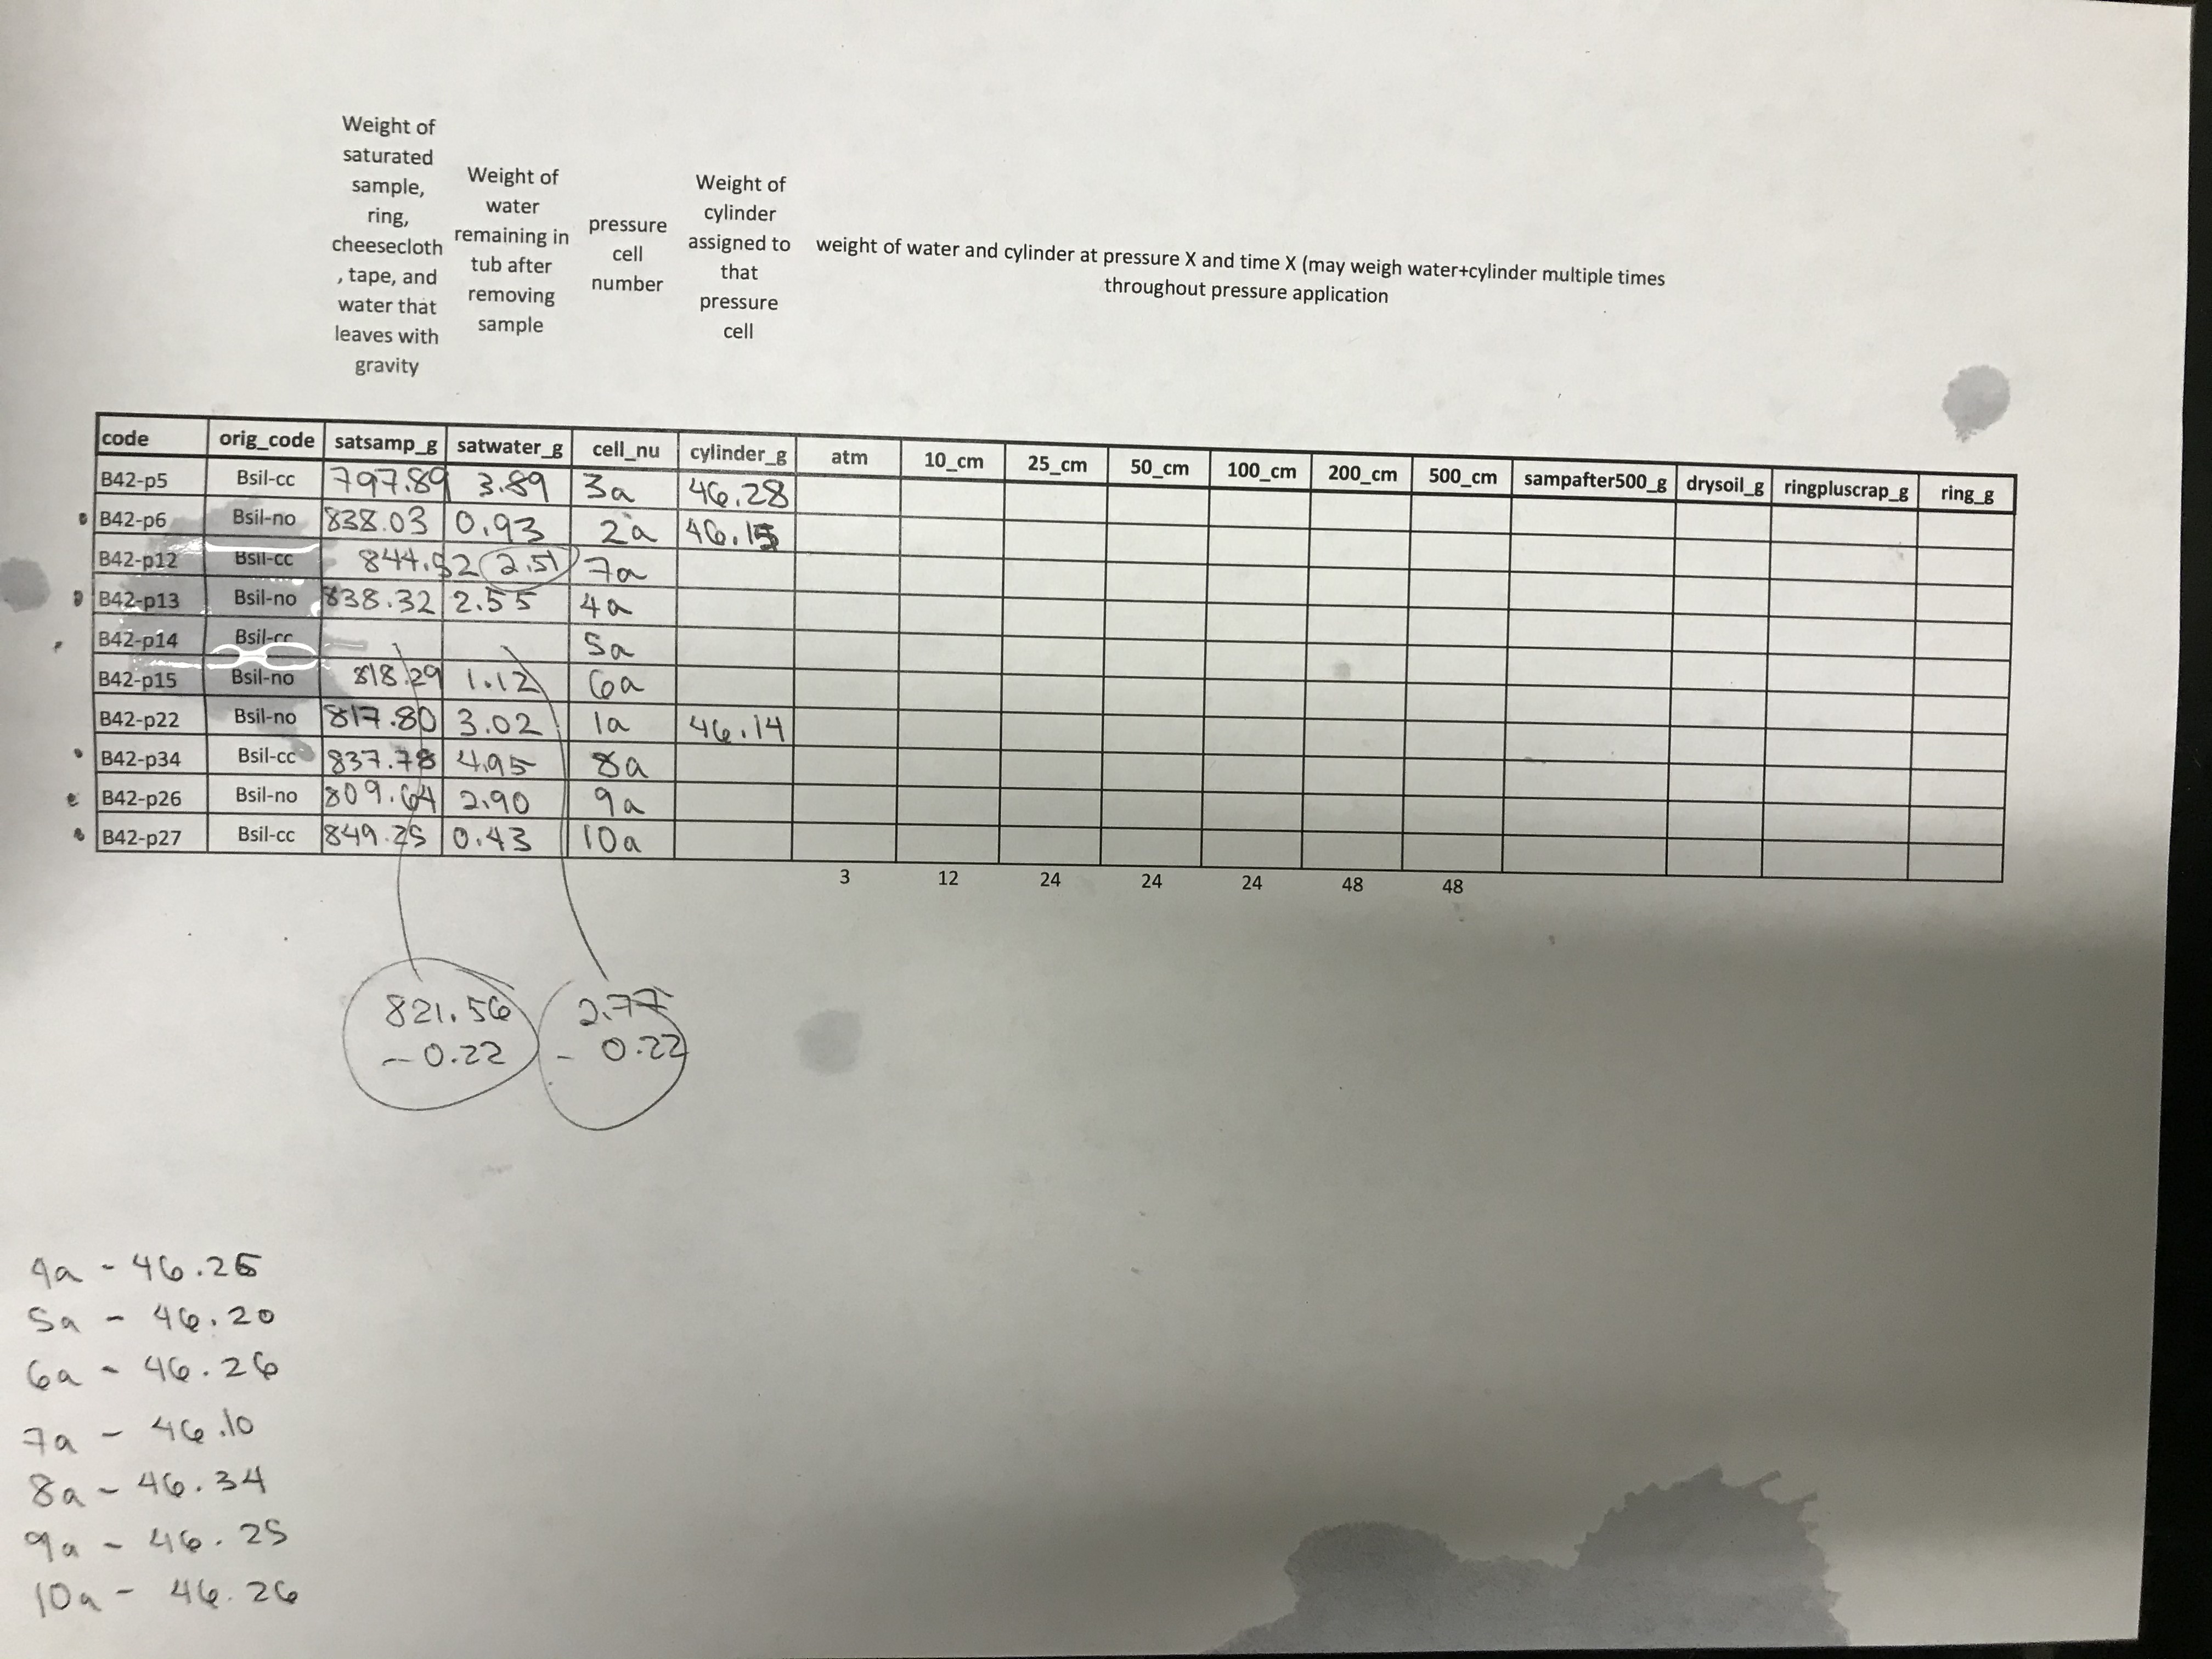 Weight of
saturated
sample,
ring,
cheesecloth
, tape, and
water that
leaves with
gravity
Weight of
water
remaining in
tub after
removing
sample
pressure
cell
number
Weight of
cylinder
assigned to
that
pressure
cell
weight of water and cylinder at pressure X and time X (may weigh water+cylinder multiple times
throughout pressure application
code orig_code satsamp_g satwater_g cell_nu cylinder_g atm 10_cm 25_cm 50_cm 100_cm 200_cm 500_cm sampafter500_g drysoil_g ringpluscrap_g ring_g
B42-p5 Bsil-cc 797.89 3.89 3a 46.28
B42-p6 Bsil-no 838.03 0.93 2a 46.15
B42-p12 Bsil-cc 2.51 7a
B42-p13 Bsil-no 838.32 2.55 4a
B42-p14 Bsil-cc 5a
B42-p15 Bsil-no 818.29 1.12 6a
B42-p22 Bsil-no 817.80 3.02 1a 46.14
B42-p34 Bsil-cc 837.78 4.95 8a
B42-p26 Bsil-no 809.64 2.90 9a
B42-p27 Bsil-cc 849.25 0.43 10a
3 12 24 24 24 48 48
821.56 2.77
- 0.22 - 0.22
4a - 46.26
5a - 46.20
6a - 46.26
7a - 46.10
8a - 46.34
9a - 46.25
10a - 46.26